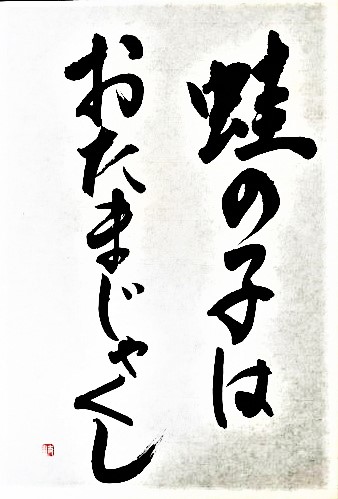 蛙の子は
おたまじゃくし